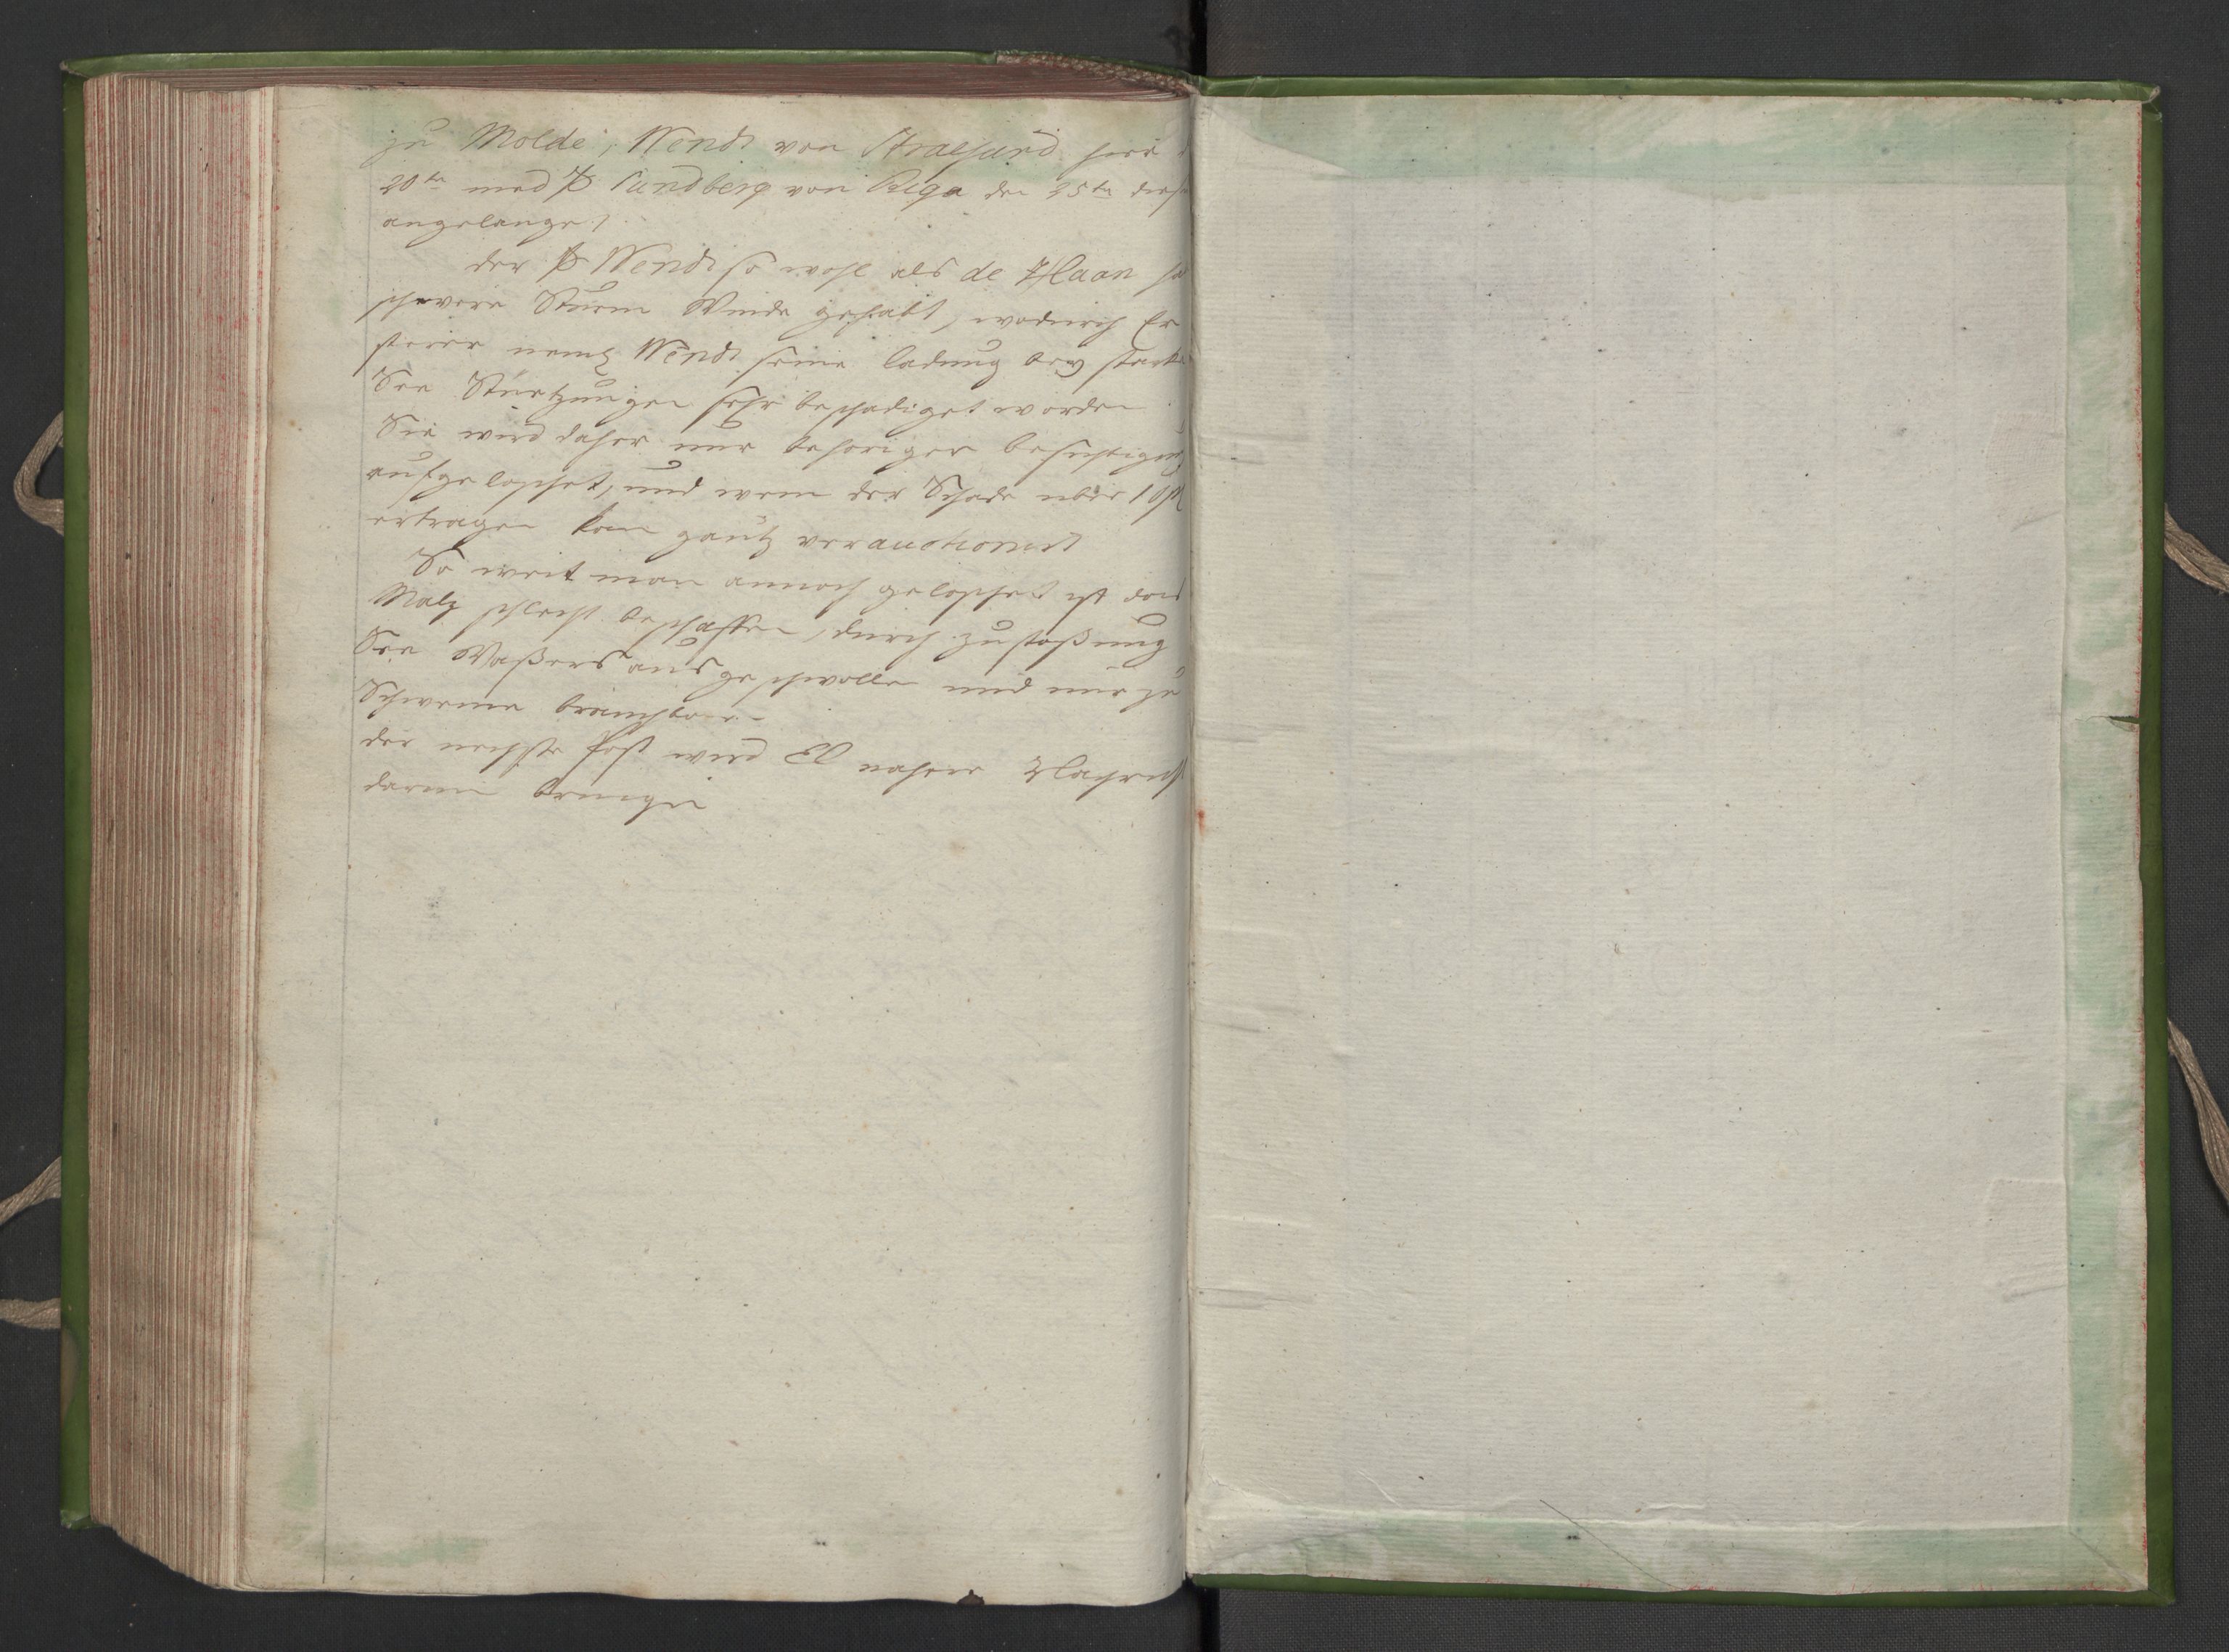 zu Molde, Wendt von Straesund hier
20ten und Sundberg von Riga den 25ten dieses
angelanget
der Wendt so wohl als de Haan
schwere Sturm Winde gehabt, wodurch Er
sterer neml Wendt seine ladung bey starke
See Sturtzungen sehr beschadiget worden
Sie wird daher nur behoriger besichtigung
aufgeloschet, und wenn der Schade uber
ertragen kan gantz verauctionirt
So weit man annoch geloschet ist das
Malz schlecht beschaffen, durch zustoßung
See Waßers aus geschwollen und nur zu
Schweine brauchbar
der nechste Post wird EE nahere Nachricht
darin bringen